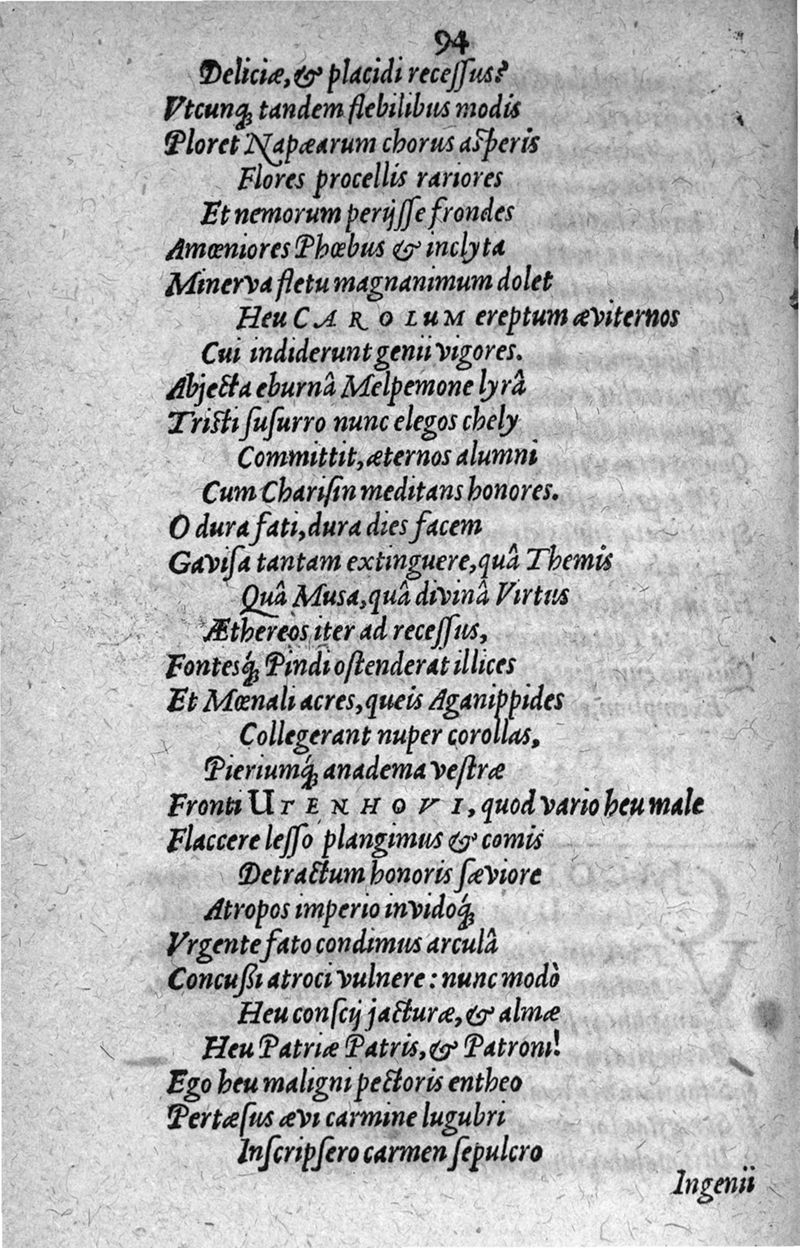 94
Deliciæ, & placidi recessus?
Vtcunq; tandem flebilibus modis
Ploret Napæarum chorus asperis
Flores procellis rariores
Et nemorum perijsse frondes
Amœniores Phœbus & inclyta
Minerva fletu magnanimum dolet
Heu CAROLUM ereptum æviternos
Cui indiderunt genii vigores.
Abjecta eburnâ Melpemone lyrâ
Tristi susurro nunc elegos chely
Committit, æternos alumni
Cum Charisin meditans honores.
O dura fati, dura dies facem
Gavisa tantam extinguere, quâ Themis
Quâ Musa, quâ divinâ Virtus
Æthereos iter ad recessus,
Fontesq́; Pindi ostenderat illices
Et Mœnali acres, queis Aganippides
Collegerant nuper corollas,
Pieriumq́; anadema vestræ
Fronti UTENHOVI, quod vario heu male
Flaccere lesso plangimus & comis
Detractum honoris sæviore
Atropos imperio invidoq́;
Vrgente fato condimus arculâ
Concußi atroci vulnere: nunc modò
Heu conscij jacturæ, & almæ
Heu Patriæ Patris, & Patroni!
Ego heu maligni pectoris entheo
Pertæsus ævi carmine lugubri
Inscripsero carmen sepulcro
Ingenii